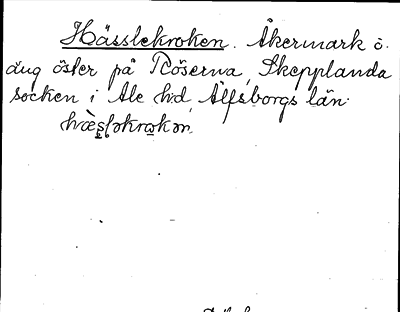 Hässlekroken. Åkermark ö.
äng öster på Röserna, Skepplanda
socken i Ale hd, Älfsborgs län.